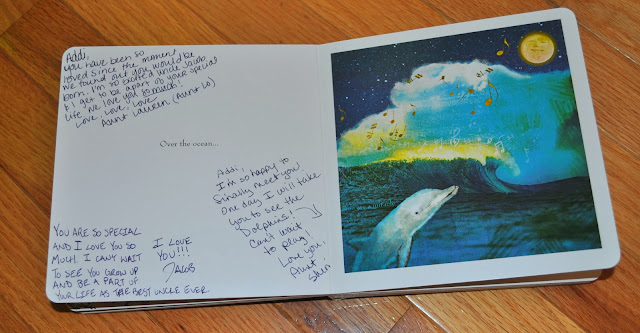 Addi,
you have been so
loved since the moment
we found out you would be
born. I'm so excited uncle Jacob
& I get to be apart of your special
life. We love you so much!
Love, Love, Love,
Aunt Lauren (Aunt Lo)
Over the ocean...
Addi,
I'm so happy to
finally meet you!
One day I will take
you to see the
Dolphins!
Can't wait
to play!
Love you,
Aunt
Shari
YOU ARE SO SPECIAL
AND I LOVE YOU SO
MUCH. I CAN'T WAIT
TO SEE YOU GROW UP
AND BE A PART OF
YOUR LIFE AS THE BEST UNCLE EVER
I LOVE
YOU!!!
JACOB